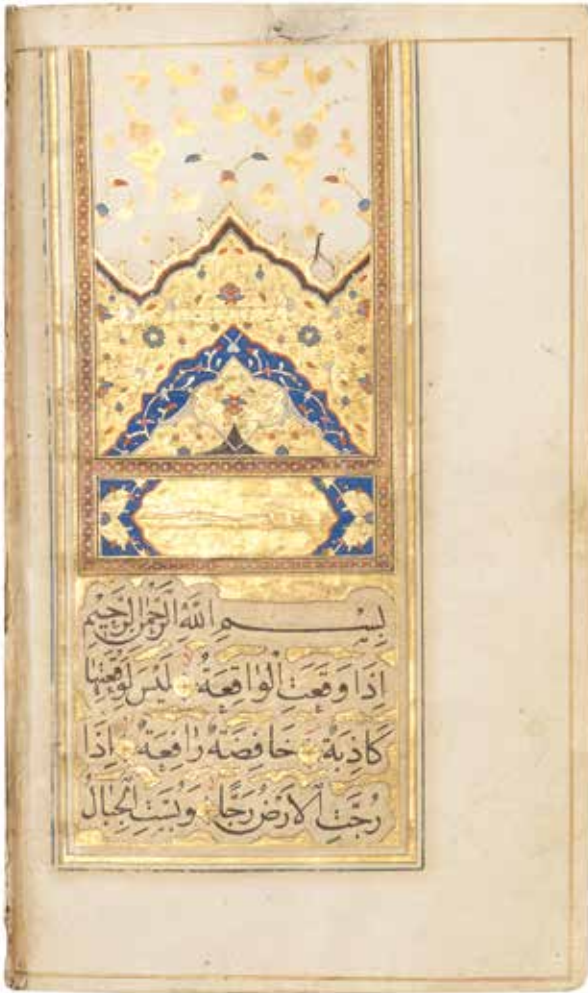 بِسْمِ اللَّهِ الرَّحْمٰنِ الرَّحِيمِ
اِذَا وَقَعَتِ الْوَاقِعَةُ لَيْسَ لِوَقْعَتِهَا
كَاذِبَةٌ خَافِضَةٌ رَافِعَةٌ اِذَا
رُجَّتِ الْاَرْضُ رَجًّا وَبُسَّتِ الْجِبَالُ